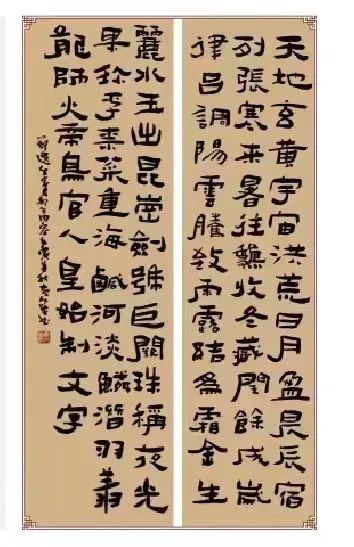 天地玄黄宇宙洪荒日月盈昃辰宿
列張寒来暑往龝收冬藏閏餘成歲
律吕調陽雲騰致雨露結為霜金生
麗水玉出昆崗劍號巨闕珠稱夜光
果珍李柰菜重海鹹河淡鱗潛羽翔
龍師火帝鳥官人皇始制文字